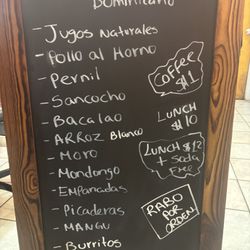 Dominicano
- Jugos Naturales
- Pollo al Horno
- Pernil
- Sancocho
- Bacalao
- Arroz Blanco
- Moro
- Mondongo
- Empanadas
- Picaderas
- Mangu
- Burritos
Coffee
$1
Lunch
$10
Lunch $12
+ Soda
Free
Rabo
por
orden